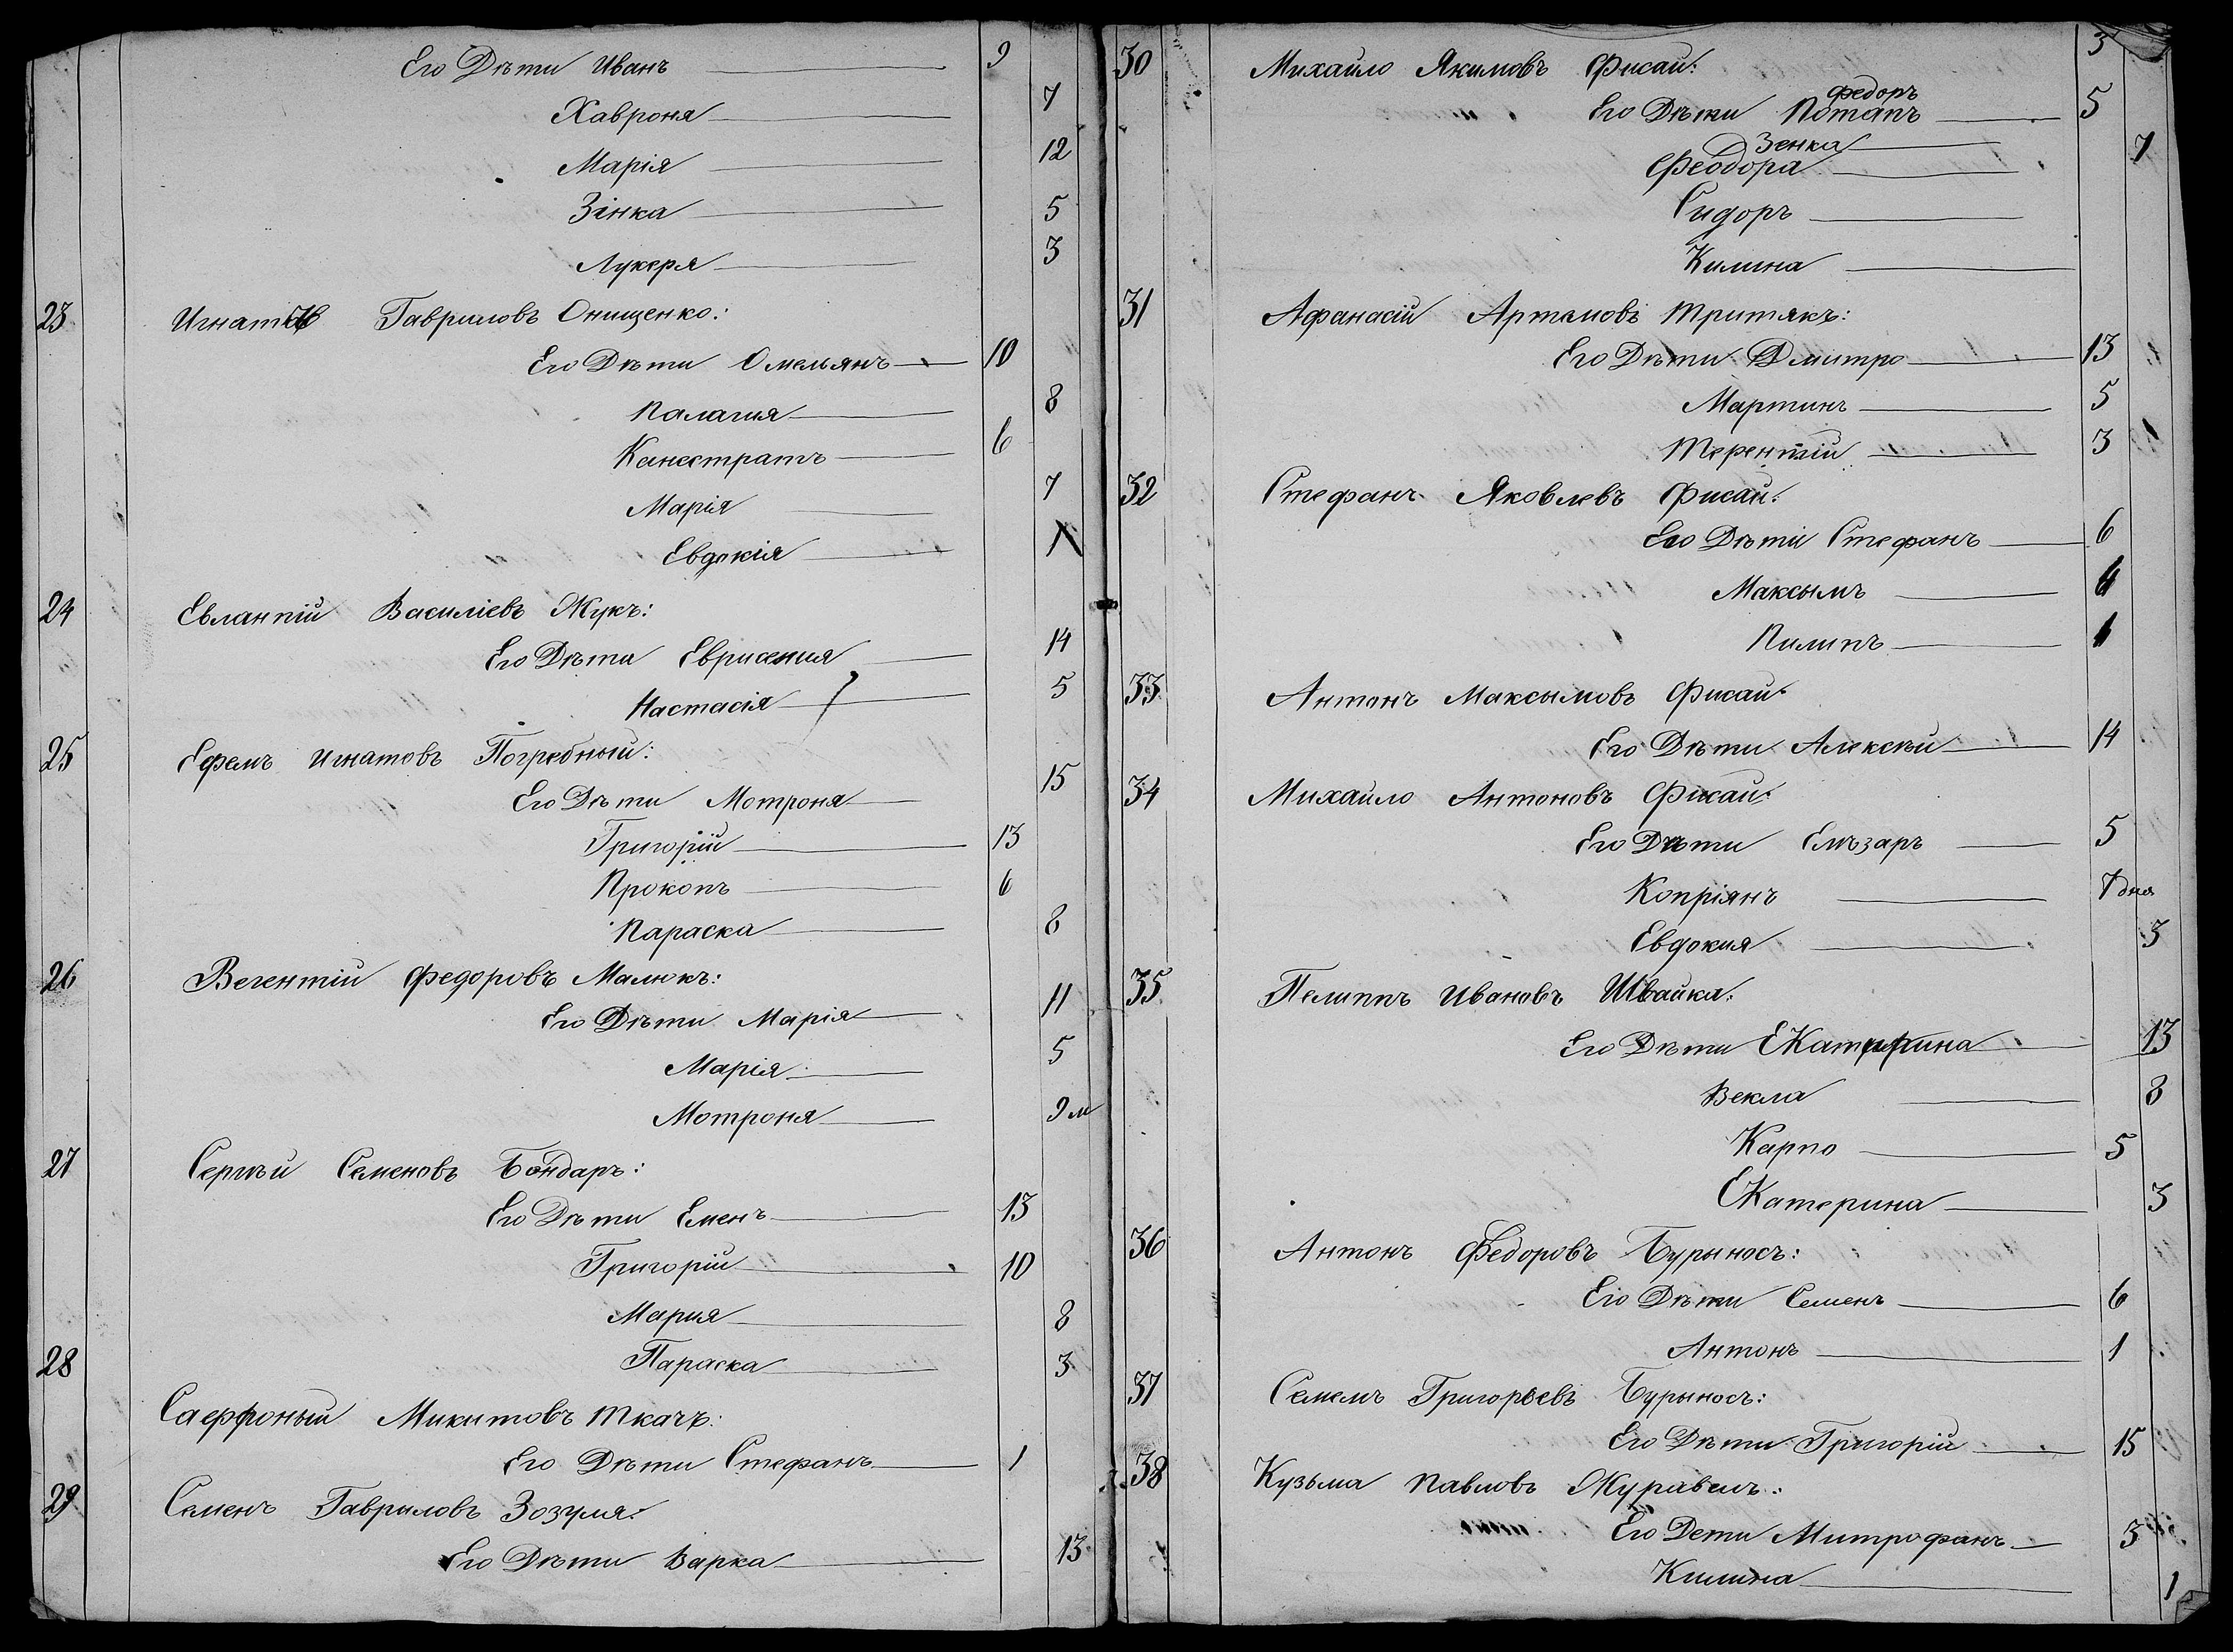 Его Дѣти Иванъ 9
Хавроня 7
Марія 12
Зінка 5
Лукеря 3
23 Игнатъ Гавриловъ Онищенко:
Его Дѣти Омельянъ 10
Палагия 8
Канестратъ 6
Марія 7
Евдокія
24 Евлантій Василіевъ Жукъ:
Его Дѣти Еврисения 14
Настасія 5
25 Ефемъ Игнатовъ Погребный:
Его Дѣти Мотроня 15
Григорій 13
Прокопъ 6
Параска 8
26 Вегентій Федоровъ Малюкъ:
Его Дѣти Марія 11
Марія 5
Мотроня 9 м
27 Сергѣй Семеновъ Бондаръ:
Его Дѣти Еменъ 13
Григорій 10
Мария 8
28 Параска 3
Сафроный Микитовъ Ткачъ:
Его Дѣти Стефанъ 1
29 Семенъ Гавриловъ Зозуля:
Его Дѣти Варка 13
30 Михаило Якимовъ Фисай: 3
Федоръ
Его Дѣти Потапъ 5
Зенка 7
Феодора
Сидоръ
Килина
31 Афанасій Артемовъ Тритякъ:
Его Дѣти Дмитро 13
Мартинъ 5
Терентій 3
32 Стефанъ Яковлевъ Фисай:
Его Дѣти Стефанъ 6
Максымъ 4
Пилипъ 1
33 Антонъ Максымовъ Фисай:
Его Дѣти Алексѣй 14
34 Михаило Антоновъ Фисай:
Его Дѣти Елѣзаръ 5
Копріянъ 7 дня
Евдокия 3
35 Пелиппъ Ивановъ Швайка:
Его Дѣти ЕКатирина 13
Векла 8
Карпо 5
ЕКатерина 3
36 Антонъ Федоровъ Бурыносъ:
Его Дѣти Семенъ 6
Антонъ 1
37 Семемъ Григорьевъ Бурыносъ:
Его Дѣти Григорій 15
38 Кузьма Павловъ Журавель:
Его Дети Митрофанъ 3
Килина 1